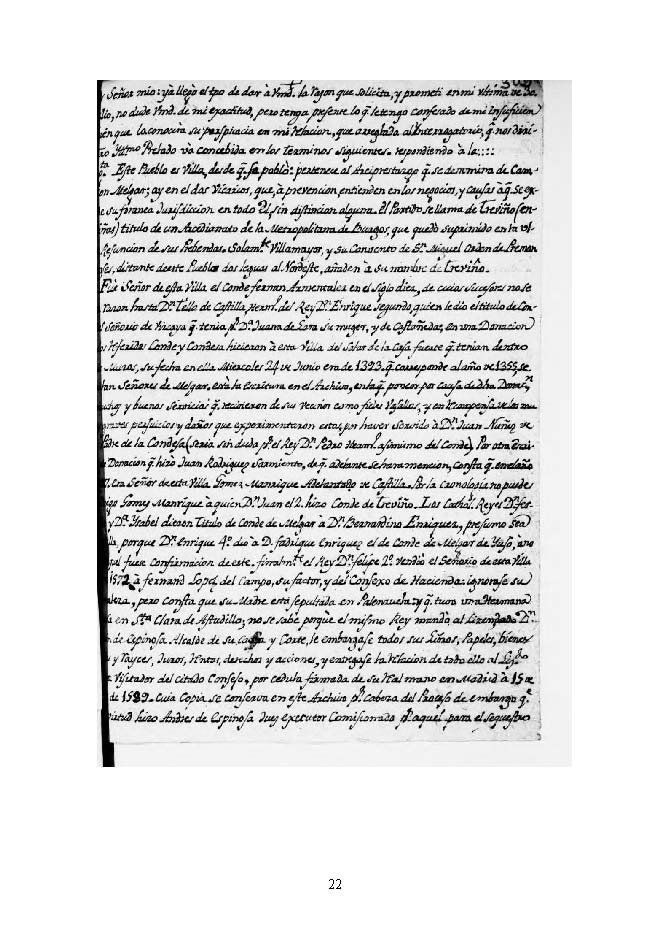 Señor mio: ya llego el tpo de dar à Vmd. la razon que solicita, y prometi en mi ultima de
no dude Vmd. de mi exactitud, pero tenga presente lo q.e tengo confesado de mi Insuficien
en que la conocera su perspicacia en mi Relacion, que arreglada al Interrogatorio, q. nos
Yltmo Prelado va concebida en los Terminos siguientes. respondiendo à la::::
Este Pueblo es Villa, desde q. se poblò: pertenece al Arciprestazgo q. se denomina de Cam
Melgar; ay en el dos Vicarios, que à prevencion entienden en los negocios, y causas à q. se
su foranea Jurisdiccion en todo el, sin distincion alguna. El Partido se llama de Treviño (en
titulo de un Arcedianato de la Metropolitana de Burgos, que quedò suprimido en la
de sus Prebendas. Solam.te Villamayor, y su Convento de S.n Miguel Orden de Premon
ses, distante de este Pueblo dos leguas al Nordeste, añaden à su nombre de Treviño.
Fue Señor de esta Villa el Conde Fernan Armentalez en el Siglo diez, de cuios Sucesores no se
razon hasta D.n Tello de Castilla, Herm.o del Rey D.n Enrique Segundo, quien le dio el titulo de Con
el Señorio de Vizcaya q. tenia p.r D.a Juana de Lara su muger, y de Castañeda; en una Donacion
referidos Conde y Condesa hicieron à esta Villa del Solar de la Casa fuerte q. tenian dentro
su fecha en ella Miercoles 24 de Junio era de 1393 q. corresponde al año de 1355, se
Señores de Melgar, esta la Escritura en el Archivo, en la q. por causa de dha Donac.n
muchos y buenos Servicios q. recivieron de sus Vecinos como fieles Vasallos, y en recompensa de los
graves perjuicios y daños que experimentaron estos, por haver Seguido à D.n Juan Nuñez de
Padre de la Condesa (seria sin duda p.r el Rey D.n Pedro Herm.o asimismo del Conde). Por otra
Donacion q. hizo Juan Rodriguez Sarmiento, de q. adelante se hara mencion, consta q. en el año
era Señor de esta Villa Gomez Manrique Adelantado de Castilla. Por la Cronologia no puede
Gomez Manrique à quien D.n Juan el 2.º hizo Conde de Treviño. Los Cathol.s Reyes D.n Fer
y D.a Ysabel dieron Titulo de Conde de Melgar à D.n Bernardino Enriquez, presumo sea
porque D.n Enrique 4.º dio à D. Fadrique Enriquez el de Conde de Melgar de Yuso, año
qual fuese Confirmacion de este. finalm.te el Rey D.n Felipe 2.º vendiò el Señorio de esta Villa
1572 à Fernand Lopez del Campo, su factor, y del Consejo de Hacienda: ignorase su
pero consta que su Madre està sepultada en Palenzuela: y q. tuvo una Hermana
en Sta Clara de Astudillo; no se sabe porque el mismo Rey mandò al Licenciado D.n
de Espinosa Alcalde de Su Casa y Corte, le embargase todos sus Libros, Papeles, bienes
y rayces, Juros, rentas, derechos y acciones, y entregase la Relacion de todo ello al
Visitador del citado Consejo, por cedula firmada de Su Real mano en Madrid à 15 de
de 1589. Cuia Copia se conserva en este Archivo p.r Cabeza del Proceso de embargo q.e
virtud hizo Andres de Espinosa Juez executor Comisionado p.r aquel para el sequestro
22